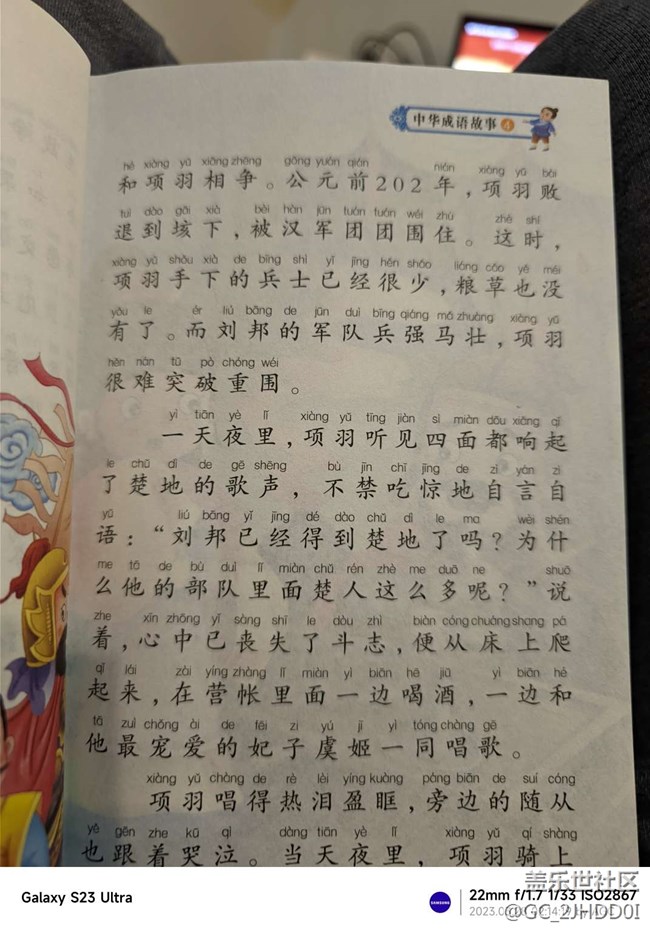 中华成语故事4
hé xiàng yǔ xiāng zhēng gōng yuán qián nián xiàng yǔ bài
和项羽相争。公元前202年,项羽败
tuì dào gāi xià bèi hàn jūn tuán tuán wéi zhù zhè shí
退到垓下,被汉军团团围住。这时,
xiàng yǔ shǒu xià de bīng shì yǐ jīng hěn shǎo liáng cǎo yě méi
项羽手下的兵士已经很少,粮草也没
yǒu le ér liú bāng de jūn duì bīng qiáng mǎ zhuàng xiàng yǔ
有了。而刘邦的军队兵强马壮,项羽
hěn nán tū pò chóng wéi
很难突破重围。
yì tiān yè lǐ xiàng yǔ tīng jiàn sì miàn dōu xiǎng qǐ
一天夜里,项羽听见四面都响起
le chǔ dì de gē shēng bù jīn chī jīng de zì yán zì
了楚地的歌声,不禁吃惊地自言自
yǔ liú bāng yǐ jīng dé dào chǔ dì le ma wèi shén
语:“刘邦已经得到楚地了吗?为什
me tā de bù duì lǐ miàn chǔ rén zhè me duō ne shuō
么他的部队里面楚人这么多呢?”说
zhe xīn zhōng yǐ sàng shī le dòu zhì biàn cóng chuáng shang pá
着,心中已丧失了斗志,便从床上爬
qǐ lái zài yíng zhàng lǐ miàn yì biān hē jiǔ yì biān hé
起来,在营帐里面一边喝酒,一边和
tā zuì chǒng ài de fēi zi yú jī yì tóng chàng gē
他最宠爱的妃子虞姬一同唱歌。
xiàng yǔ chàng de rè lèi yíng kuàng páng biān de suí cóng
项羽唱得热泪盈眶,旁边的随从
yě gēn zhe kū qì dàng tiān yè lǐ xiàng yǔ qí shàng
也跟着哭泣。当天夜里,项羽骑上
盖乐世社区
Galaxy S23 Ultra
SAMSUNG
22mm f/1.7 1/33 ISO2867
@GC_2JHDD0I